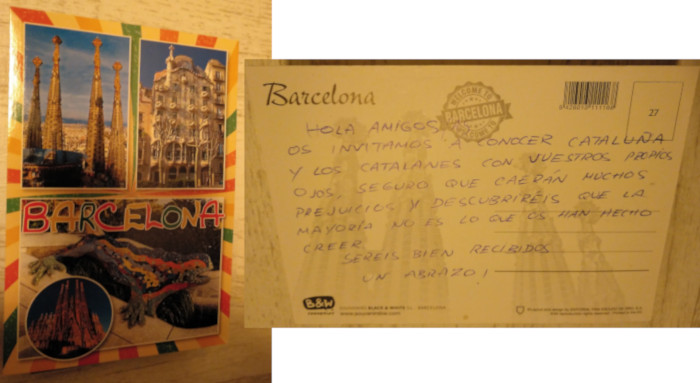 BARCELONA
Barcelona
WELCOME TO
BARCELONA
27
HOLA AMIGOS
OS INVITAMOS A CONOCER CATALUÑA
Y LOS CATALANES CON VUESTROS PROPIOS
OJOS, SEGURO QUE CAERÁN MUCHOS
PREJUICIOS Y DESCUBRIRÉIS QUE LA
MAYORÍA NO ES LO QUE OS HAN HECHO
CREER
SERÉIS BIEN RECIBIDOS
UN ABRAZO!
B&W
BLACK & WHITE
BARCELONA